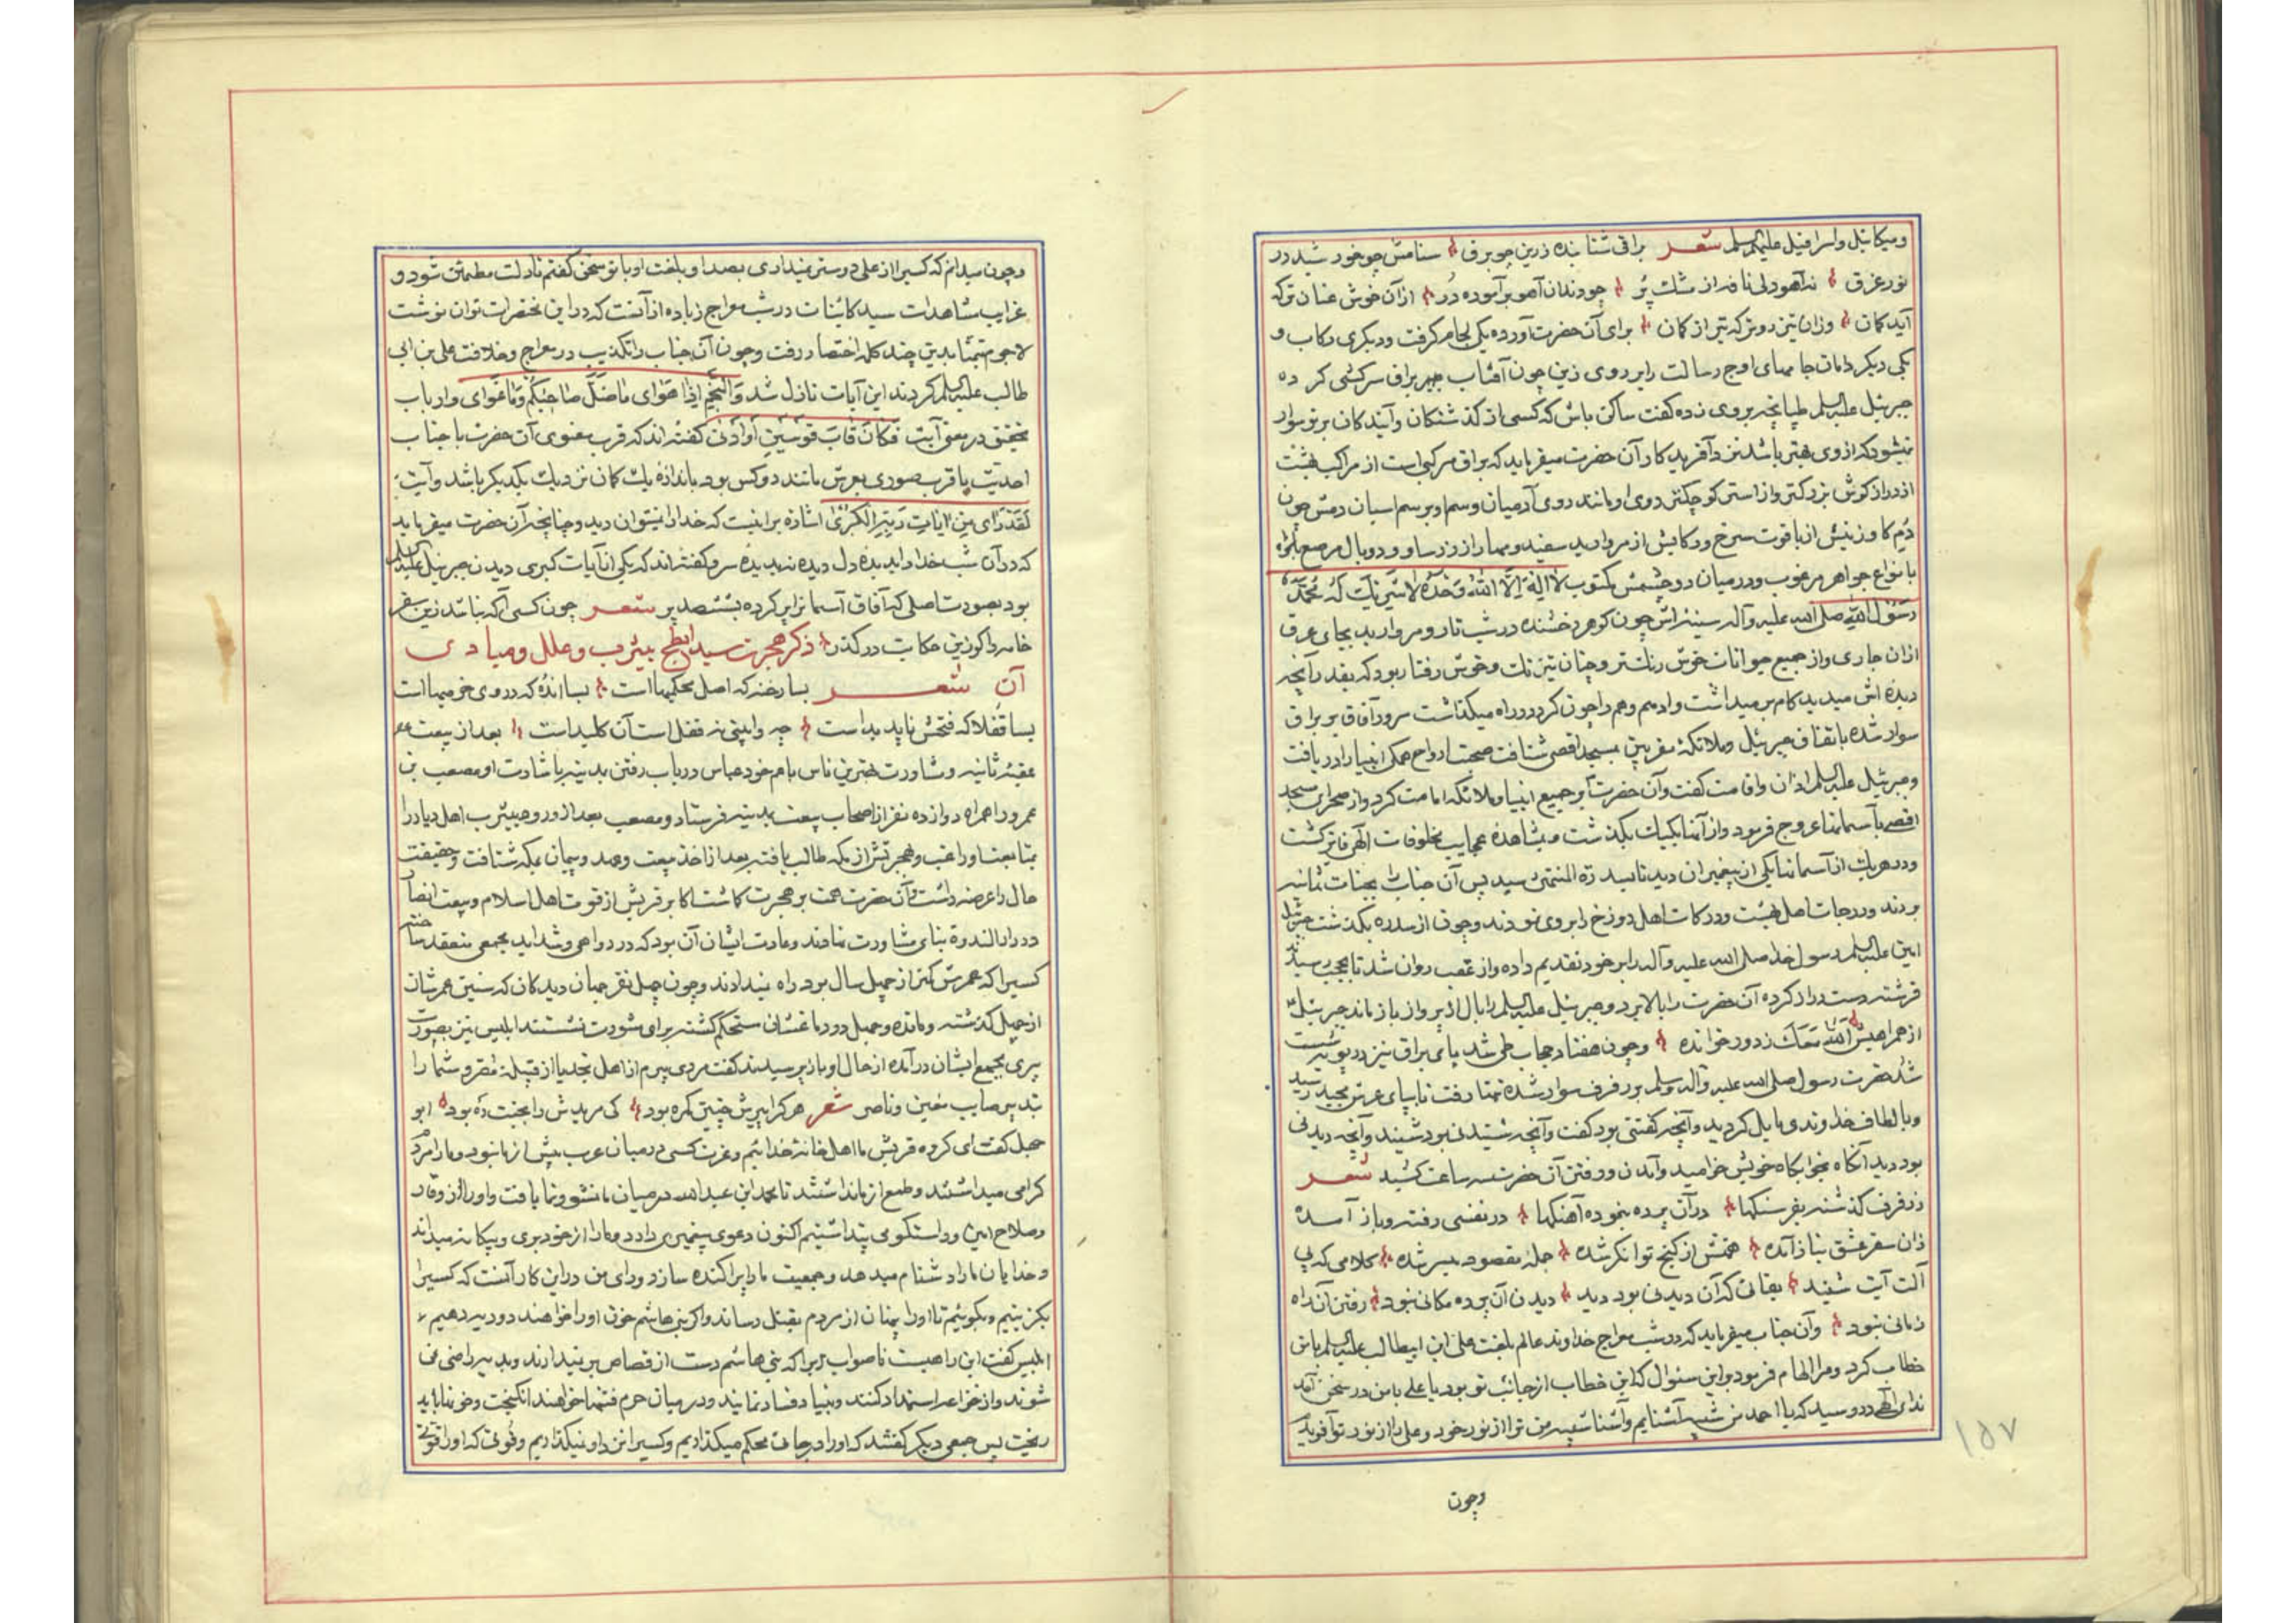 ومیکائیل واسرافیل علیهم السلم شعر براقی شتابنده زرین چو برق سنامش چو خورشید در
نور غرق نه آهو ولی نافه از مشک پر چو دندان آهو برآموده در ازآن خوش عنان ترکه
آید کمان وزان تیز روتر که تیر از کمان برای آن حضرت آورده یکی لجام گرفت ودیکری رکاب و
یکی دیکر دامان جامهای اوج رسالت رابر روی زین چون آفتاب براق سرکشی کرده
جبرئیل علیه السلم طپانچه بروی زده کفت ساکن باش که کسی از کذشتکان وآیندکان بر تو سوار
نمیشود که ازوی بهتر باشد نزد آفریدکار آن حضرت میفرماید که براق مرکبی است از مراکب بهشت
از درازکوش بزرکتر واز استر کوچکتر روی او مانند روی آدمیان وسم او بر سم اسبان دمش چون
دم کاو زینش از یاقوت سرخ ورکابش از مروارید سفید ومهار از زر ساو ودو بال مرصع
بانواع جواهر مرغوب ودر میان دو چشمش مکتوب لا اله الا الله وحده لا شریک له محمد
رسول الله صلی الله علیه وآله سینه اش چون کوهر درخشنده در شب تار ومروارید بجای عرق
ازان جاری واز جمیع حیوانات خوش رنکتر وچنان تیز تک وخوش رفتار بود که بقدر آنچه
دیده اش میدید کام بر میداشت وادهم وهم را چون کرد در راه میکذاشت سرور آفاق بر براق
سوار شده باتفاق جبرئیل وملائکهٔ مقربین بمسجد اقصی شتافت صحبت ارواح همکی انبیا را دریافت
وجبرئیل علیه السلم اذان واقامت کفت وآن حضرت بر جمیع انبیا وملائکه امامت کرد واز صحرای مسجد
اقصی بآسمانها عروج فرمود واز آنها یکیک بکذشت وبمشاهدهٔ عجایب مخلوقات الهی فایز کشت
ودر هریک از آسمانها یکی از پیغمبران دید تا بسدرة المنتهی رسید پس آن جناب را بجنات ثمانیه
بردند ودرجات اهل بهشت ودرکات اهل دوزخ را بر وی نمودند وچون از سدره بکذشت جبرئیل
امین علیه السلم رسول خدا صلی الله علیه وآله را بر خود تقدیم داده واز عقب روان شد تا بحجب رسیدند
فرشته دست دراز کرده آن حضرت را بالا برد وجبرئیل علیه السلم را بال از پرواز باز ماند جبرئیل
از همراهیش الله معک زدور خوانده وچون هفتاد حجاب طی شد پای براق نیز در
شد حضرت رسول صلی الله علیه وآله وسلم بر رفرف سوار شده همیرفت تا بپای عرش مجید رسید
وبالطاف خداوندی مایل کردید وآنچه کفتنی بود کفت وآنچه شنیدنی بود شنید وآنچه دیدنی
بود دید آنکاه بخوابکاه خویش خرامید وآمدن ورفتن آن حضرت سه ساعت کشید شعر
زرفرف کذشته بفرسنکها درآن پرده بنموده آهنکها در نفسی رفته وباز آمده
زان سفر عشق بناز آمده همتش از کنج توانکر شده جمله مقصود میسر شده کلامی که بی
آلت آیت شنید بقائی که آن دیدنی بود دید دیدن آن پرده مکانی نبود رفتن آن راه
زمانی نبود وآن جناب میفرماید که در شب معراج خداوند عالم بلغت علی ابن ابیطالب علیه السلم بامن
خطاب کرد ومرا الهام فرمود براین سئوال که این خطاب ازجانب تو بود یا علی بامن در سخن آمد
ندای الهی در رسید که یا احمد من شبیه آشنایم وآشنا شبیه من ترا از نور خود وعلی را از نور تو آفریدم
وچون
١٥٧
وچون میدانم که کسیرا از علی دوستر نمیداری بصدا وبلغت او باتو سخن کفتم تا دلت مطمئن شود و
غرایب مشاهدات سید کاینات در شب معراج زیاده از آنست که در این مختصرات توان نوشت
لاجرم تیمنا بدین چند کلمه اختصار رفت وچون آن جناب را تکذیب در معراج وخلافت علی بن ابی
طالب علیه السلم کردند این آیات نازل شد والنجم اذا هوای ماضل صاحبکم وماغوای وارباب
تحقیق در معنی آیت فکان قاب قوسین اوادنی کفته اند که قرب معنوی آن حضرت با جناب
احدیت یا قرب صوری بعرش مانند دو کس بود باندازه یک کمان نزدیک یکدیکر باشد وآیت
لقد رای من ایات ربه الکبری اشاره براینست که خدا را نمیتوان دید وچنانچه آن حضرت میفرماید
که در آن شب خدا را بدیدهٔ دل دیده نه بدیدهٔ سر وکفته اند که یکی از آیات کبری دیدن جبرئیل علیه السلم
بود بصورت اصلی که آفاق آسمانرا پر کرده بششصد پر شعر چون کسی آکه نباشد زین سفر
خامه را کو زین حکایت در کذر ذکر هجرت سید ابطح بیثرب وعلل ومبادی
آن شعر بسا رخنه که اصل محکمیها است بسا اندُه که در وی خرمیهااست
بسا قفلا که فتحش ناپدید است چه وابینی نه قفل است آن کلید است بعد از بیعت
عقبه ثانیه ومشاورت بهترین ناس با عم خود عباس درباب رفتن بمدینه باشارت او مصعب بن
عمرو را همراه دوازده نفر از اصحاب بیعت بمدینه فرستاد ومصعب بعد از ورود بیثرب اهل دیار را
بمتابعت او راغب وبهجرتش از مکه طالب یافته بعد از اخذ بیعت وعهد وپیمان بمکه شتافت وحقیقت
حال را عرضه داشت وآن حضرت همت بر هجرت کماشت اکابر قریش از قوت اهل اسلام وبیعت انصار
در دار الندوة بنای مشاورت نهادند وعادت ایشان آن بود که در دواهی وشداید مجمعی منعقد ساخته
کسیرا که عمرش کمتر از چهل سال بود راه نمیدادند وچون چهل نفر جهان دیدکان که سنین عمرشان
از چهل کذشته و در دماغشان مستحکم کشته برای مشورت نشستند ابلیس نیز بصورت
پیری بمجمع ایشان درآمده از حال او باز پرسیدند کفت مردی پیرم از اهل نجد یا از قبیلهٔ مضر وشما را
بتدبیر صایب معین وناصر شعر هر کرا پیرش چنین کمره بود کی مریدش را بجنت ره بود ابو
جهل کفت ای کروه قریش ما اهل خانهٔ خدائیم وعزت کسی درمیان عرب بیش از ما نبود ومارا مردم
کرامی میداشتند وطمع از ما نداشتند تا محمد ابن عبد الله در میان ما نشو ونما یافت واورا از وقار
وصلاح امین وراستکو می پنداشتیم اکنون دعوی پیغمبری دارد ومارا از خود بری وبیکانه میداند
وخدایان مارا دشنام میدهد وجمعیت مارا پراکنده سازد ورای من دراین کار آنست که کسیرا
بکزینیم وبکوئیم تا اورا پنهان از مردم بقتل رساند واکر بنی هاشم خون اورا خواهند دو دیه دهیم
ابلیس کفت این راهیست ناصواب زیرا که بنی هاشم دست از قصاص بر نمیدارند وبدیه راضی نمی
شوند واز خزاعه استمداد کنند وبنیاد فساد نمایند ودر میان حرم فتنها خواهند انکیخت وخونها باید
ریخت پس جمعی دیکر کفتند که اورا در جائی محکم میکذاریم وکسیرا نزد او نمیکذاریم وقوتی که اورا قوتی